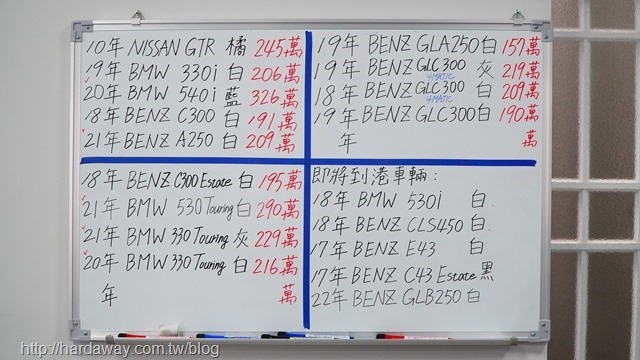 10年 NISSAN GTR 橘 245萬
19年 BMW 330i 白 206萬
20年 BMW 540i 藍 326萬
18年 BENZ C300 白 191萬
21年 BENZ A250 白 209萬
19年 BENZ GLA250 白 157萬
19年 BENZ GLC300 灰 219萬
4MATIC
18年 BENZ GLC300 白 209萬
4MATIC
19年 BENZ GLC300 白 190萬
年 萬
18年 BENZ C300 Estate 白 195萬
21年 BMW 530 Touring 白 290萬
21年 BMW 330 Touring 灰 229萬
20年 BMW 330 Touring 白 216萬
年 萬
即將到港車輛:
18年 BMW 530i 白
18年 BENZ CLS450 白
17年 BENZ E43 白
17年 BENZ C43 Estate 黑
22年 BENZ GLB250 白
http://hardaway.com.tw/blog